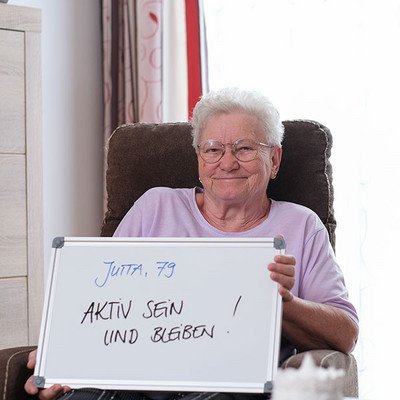 JUTTA, 79
AKTIV SEIN
UND BLEIBEN!